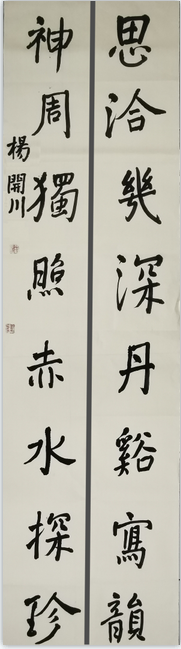 思洽幾深丹谿寫韻
神周獨照赤水探珍
楊開川